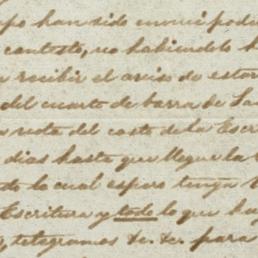 po han sido
contesto, no habiendolo h
recibir el aviso de estar
del cuarto de barra de Sa
nota del coste de la Escr
dias hasta que llegue la
de lo cual espero tenga
Escritura y todo lo que hay
, telegramas &c. &c. para